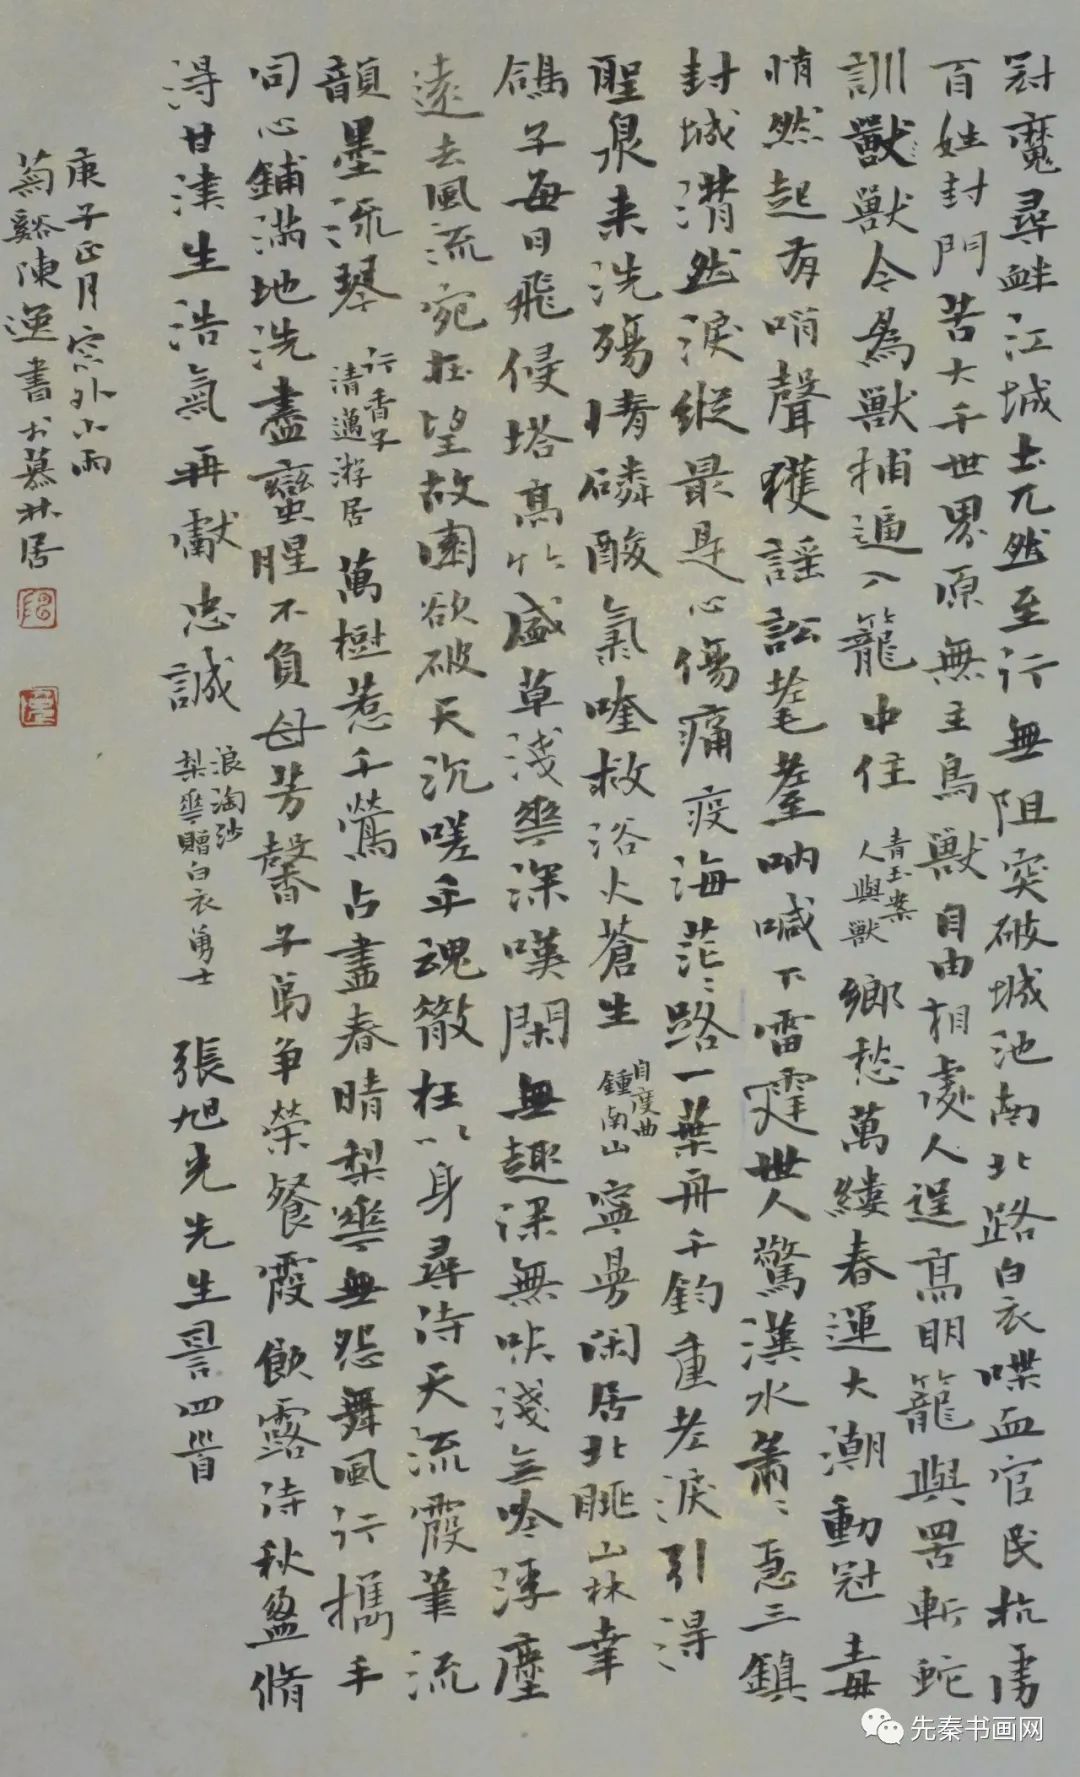 冠魔尋衅江城土兀然至行無阻突破城池南北路白衣喋血官民抗勇
百姓封門苦大千世界原無主鳥獸自由相處人逞高明籠與罟斬蛇
訓獸獸令為獸捕逼入籠中住 青玉案 人與獸 鄉愁萬縷春運大潮動冠毒
悄然起有哨聲獲謠訟耄耋吶喊下雷霆世人驚漢水蕭ミ惡三鎮
封城潸然淚縱最是心傷痛疫海茫ミ路一葉舟千鈞重老淚引得
聖泉來洗殤情磷酸氯喹救浴火蒼生 自度曲 鍾南山 寧曼闲居北眺山林幸
鴿子每日飛侵塔高竹盛草淺華深嘆閑無趣深無味淺無吟浮塵
遠去風流宛在望故園欲破天沉嗟乎魂散枉以身尋待天流霞筆流
韻墨流琴 行香子 清邁游居 萬樹惹千鶯占盡春晴梨華無怨舞風行攜手
同心鋪滿地洗盡蠻腥不負母芳馨子弟争榮餐霞飲露待秋盈脩
得甘津生浩氣再獻忠誠 浪淘沙 梨華贈白衣勇士 張旭光先生詞四首
庚子正月窓外小雨
菊谿陳逸書於慕林居
先秦书画网